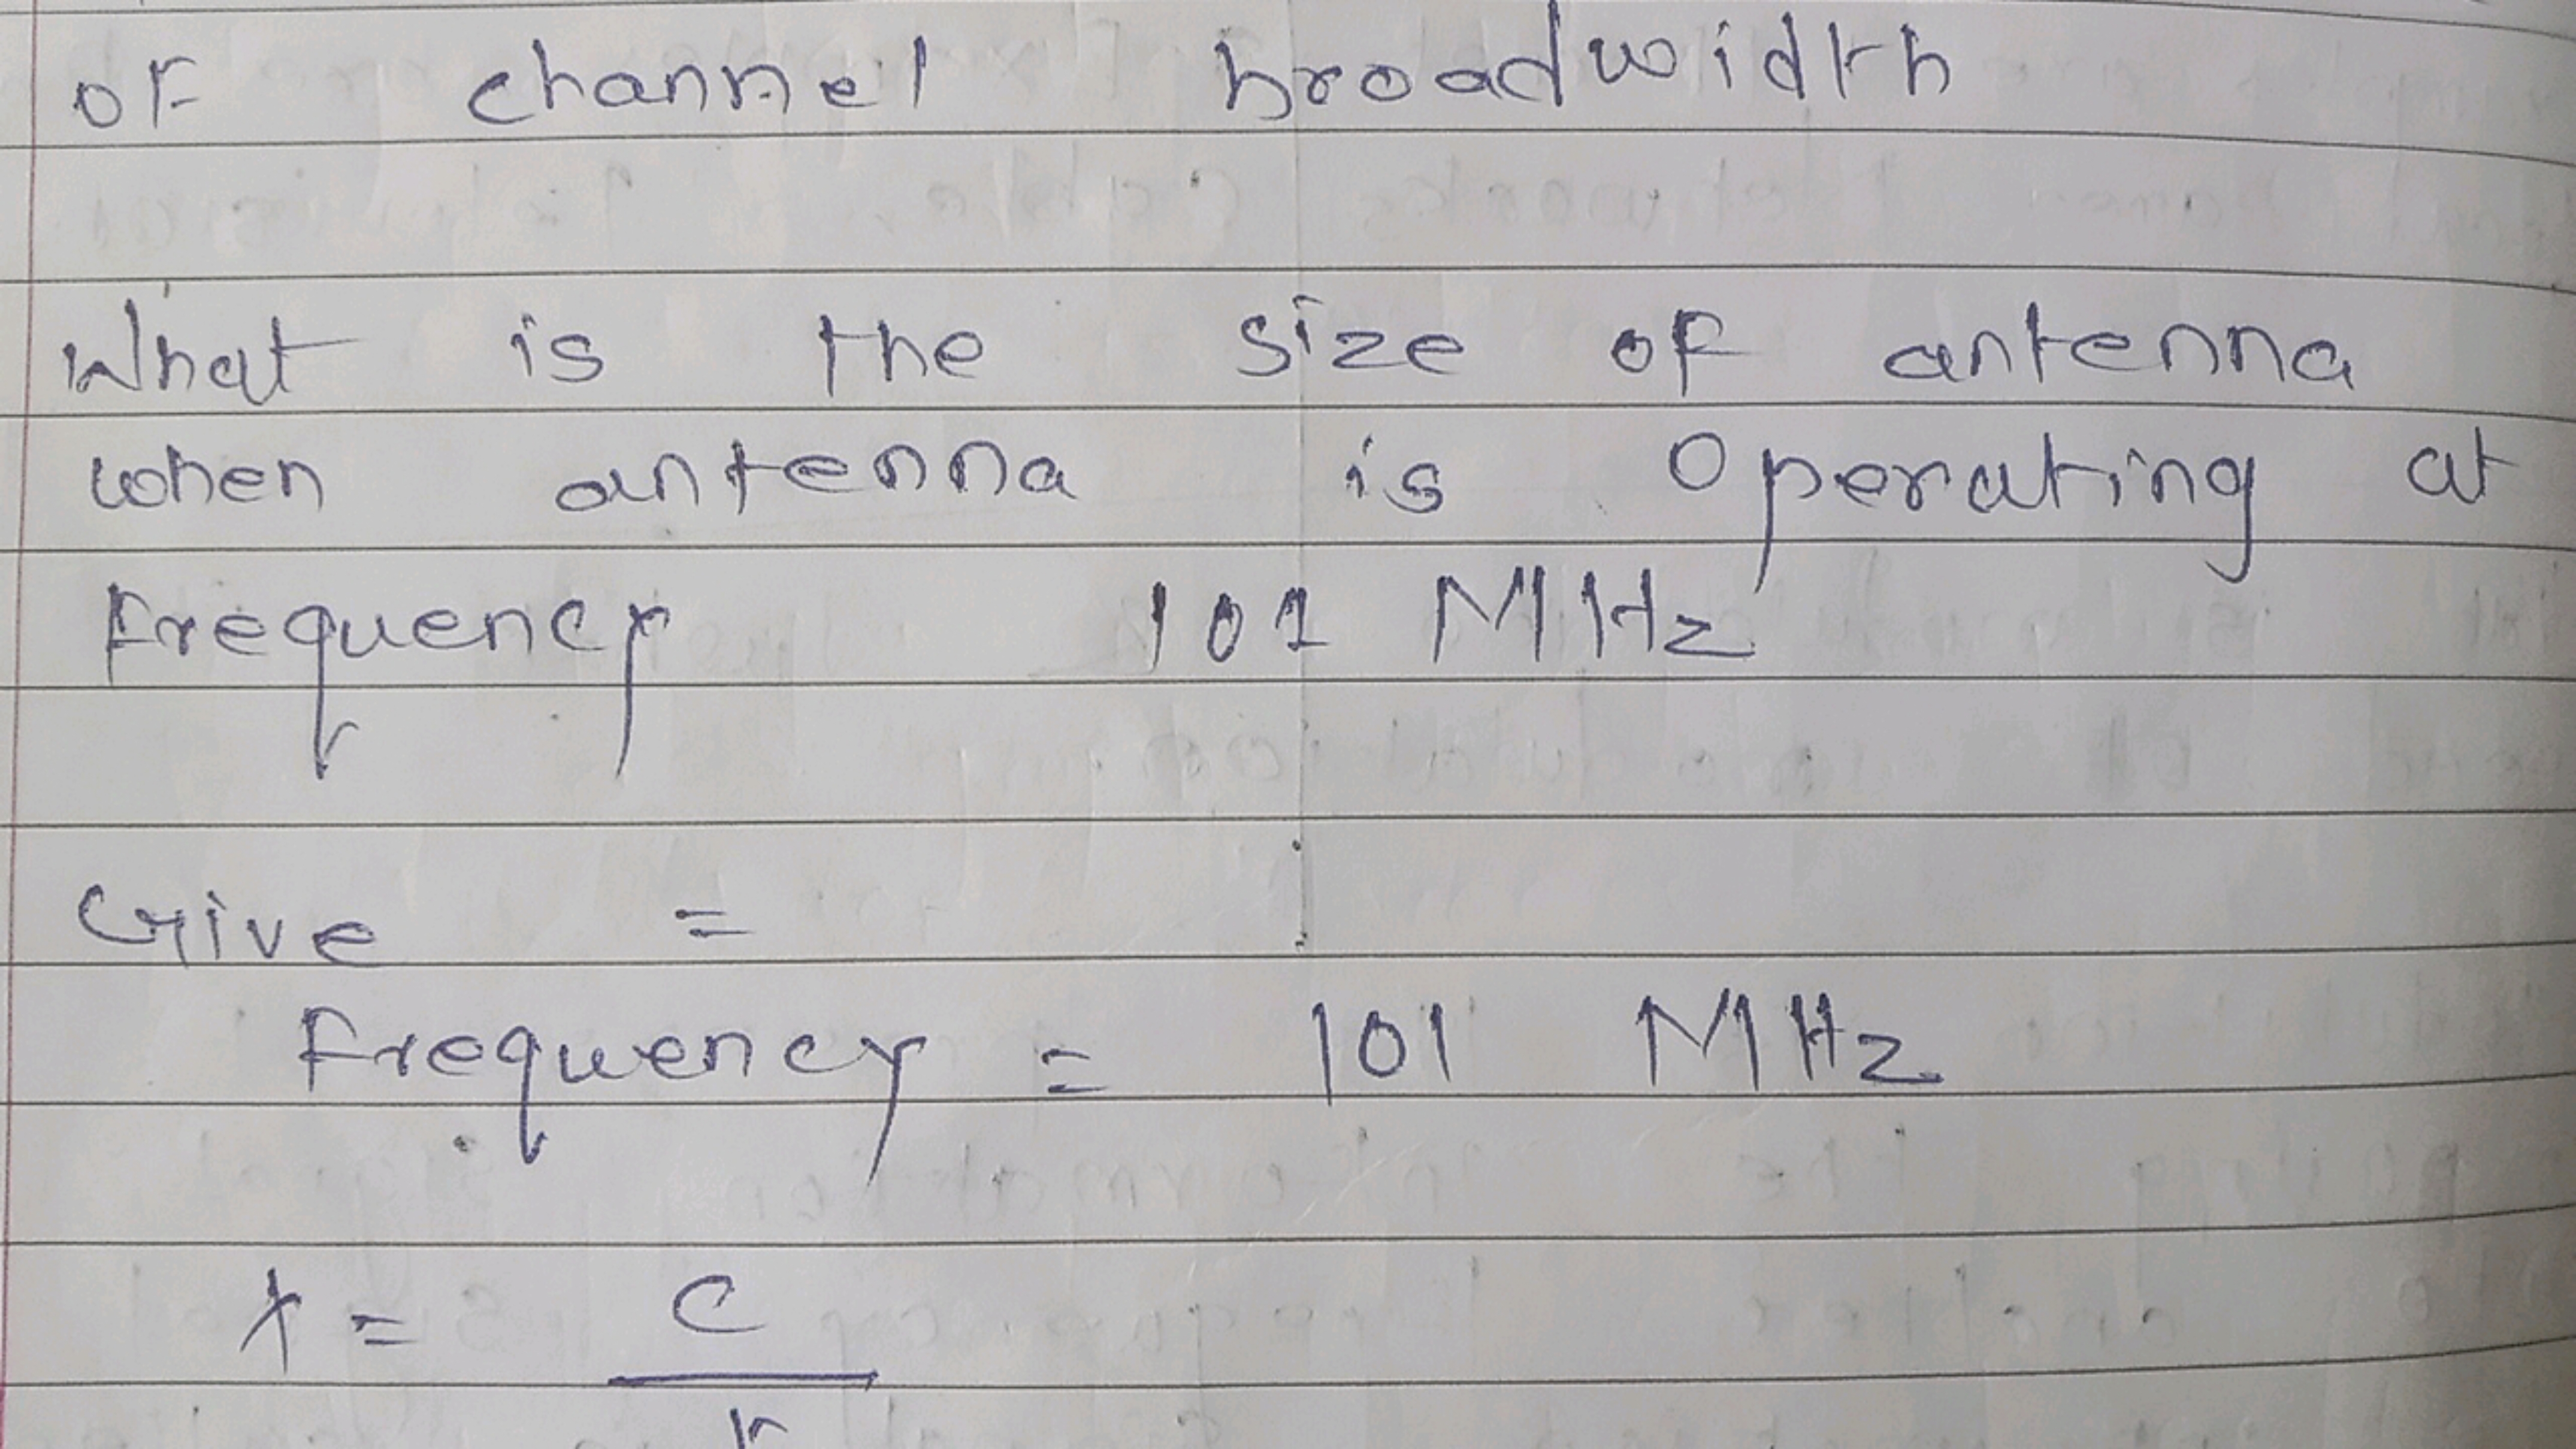 of channel broadwidth
What is the size of antenna
when antenna is operating at
frequency 101 MHz
Give =
frequency = 101 MHz
λ = c